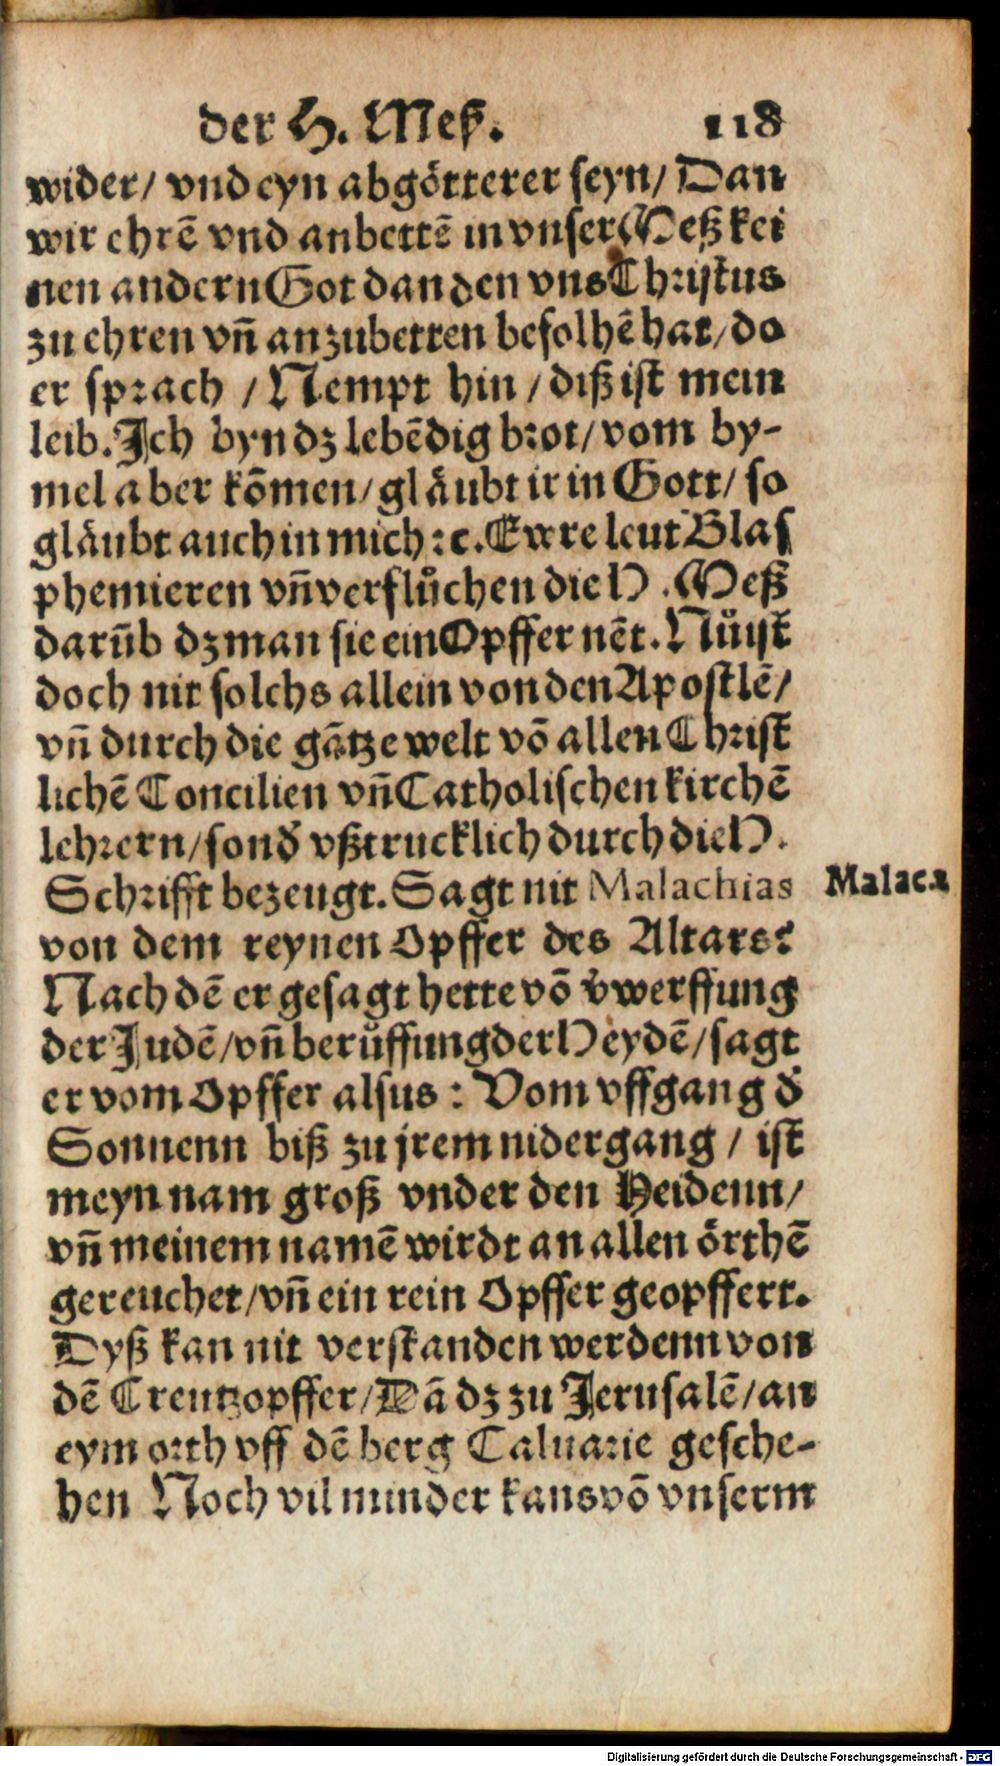 der H. Meß. 118
wider/ vnd eyn abgötterer seyn/ Dan
wir ehrē vnd anbettē in vnser Meß kei
nen andern Got dan den vns Christus
zu ehren vñ anzubetten befolhē hat/ do
er sprach / Nempt hin / diß ist mein
leib. Ich byn dz lebēdig brot/ vom hy-
mel aber kōmen/ gläubt ir in Gott/ so
gläubt auch in mich ꝛc. Ewre leut Blas
phemieren vñ verflůchen die H. Meß
darūb dz man sie ein Opffer nēt. Nů ist
doch nit solchs allein von den Apostlē/
vñ durch die gātze welt vō allen Christ
lichē Concilien vñ Catholischen kirchē
lehrern/ sonđ vßtrucklich durch die H.
Schrifft bezeugt. Sagt nit Malachias
Malac.1
von dem reynen Opffer des Altars?
Nach dē er gesagt hette vō v̄werffung
der Judē/ vñ berůffung der Heydē/ sagt
er vom Opffer alsus: Vom vffgang đ
Sonnenn biß zu jrem nidergang / ist
meyn nam groß vnder den Heidenn/
vñ meinem namē wirdt an allen örthē
gereuchet/ vñ ein rein Opffer geopffert.
Dyß kan nit verstanden werdenn von
dē Creutzopffer/ Dā dz zu Jerusalē/ an
eym orth vff dē berg Caluarie gesche-
hen Noch vil minder kans vō vnserm
Digitalisierung gefördert durch die Deutsche Forschungsgemeinschaft - DFG